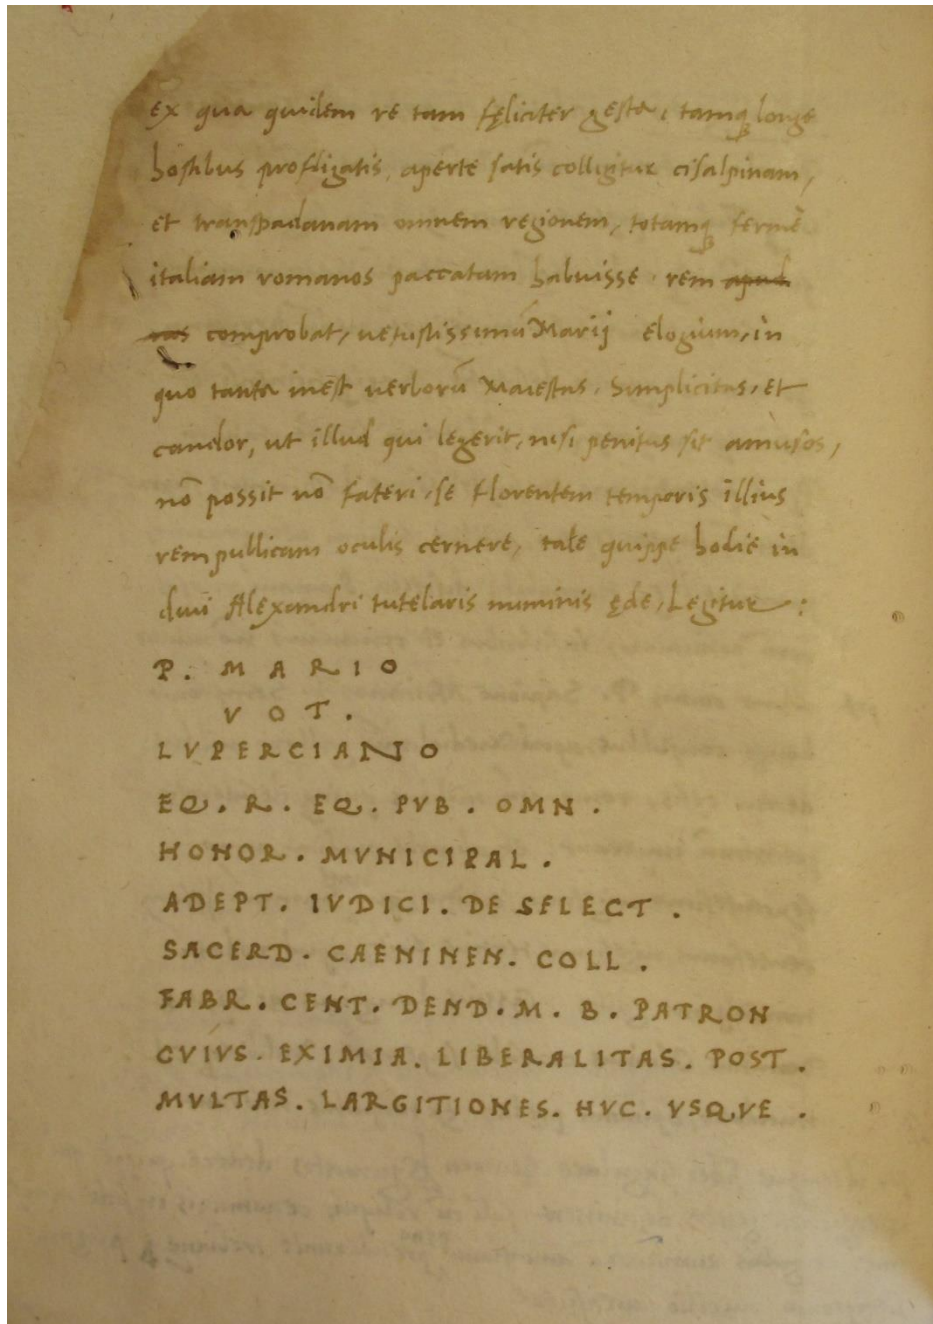 ex qua quidem re tam fęliciter gesta, tamq; longe
hostibus profligatis, aperte satis colligitur cisalpinam,
et transpadanam omnem regionem, totamq; ferme
italiam romanos paccatam habuisse. rem apud
nos comprobat, uetustissimũ Marij elogium, in
quo tanta inest uerborũ Maiestas, Simplicitas, et
candor, ut illud qui legerit, nisi penitus sit amusos,
nõ possit nõ fateri, se florentem temporis illius
rempullicam oculis cernere, tale quippe hodie in
diui Alexandri tutelaris numinis ęde, Legitur:
P. MARIO
VOT.
LVPERCIANO
EQ. R. EQ. PVB. OMN.
HONOR. MVNICIPAL.
ADEPT. IVDICI. DE SELECT.
SACERD. CAENINEN. COLL.
FABR. CENT. DEND. M. B. PATRON
CVIVS. EXIMIA. LIBERALITAS. POST.
MVLTAS. LARGITIONES. HVC. VSQVE.